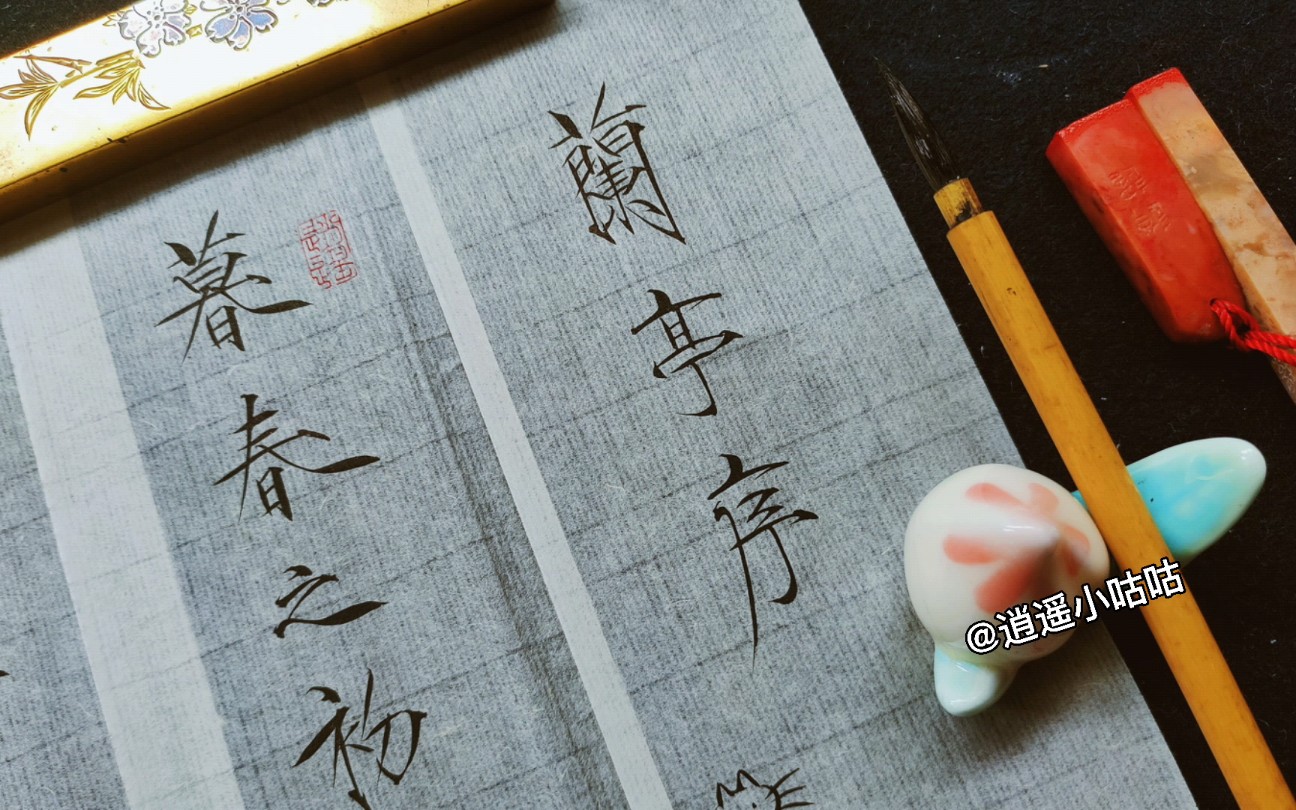 蘭亭序
暮春之初
@逍遥小咕咕